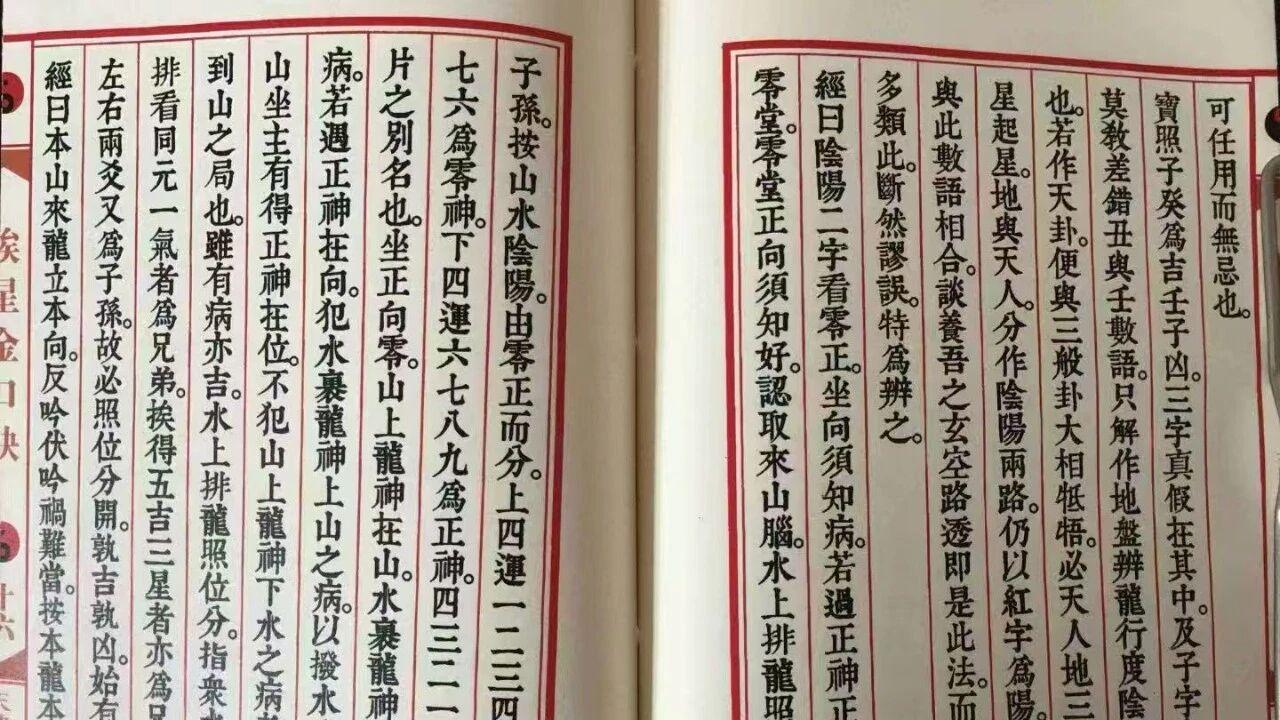 可任用而無忌也。
寶照子癸爲吉壬子凶。三字真假在其中。及子字
莫教差錯丑與壬數語。只解作地盤辨龍行度陰
也。若作天卦。便與三般卦大相牴牾。必天人地三
星起星。地與天人。分作陰陽兩路。仍以紅字爲陽
與此數語相合。談養吾之玄空路透即是此法。而
多類此。斷然謬誤。特爲辨之。
經曰陰陽二字看零正。坐向須知病。若過正神正
零堂。零堂正向須知好。認取來山腦。水上排龍照
子孫。按山水陰陽。由零正而分。上四運一二三四
七六爲零神。下四運六七八九爲正神。四三二一
片之別名也。坐正向零。山上龍神在山。水裏龍神
病。若遇正神在向。犯水裏龍神上山之病。以撥水
山坐主有得正神在位。不犯山上龍神下水之病
到山之局也。雖有病亦吉。水上排龍照位分。指衆
排看同元一氣者爲兄弟。挨得五吉三星者亦爲兄
左右兩爻又爲子孫。故必照位分開。孰吉孰凶。始有
經曰本山來龍立本向。反吟伏吟禍難當。按本龍本
挨星金口訣